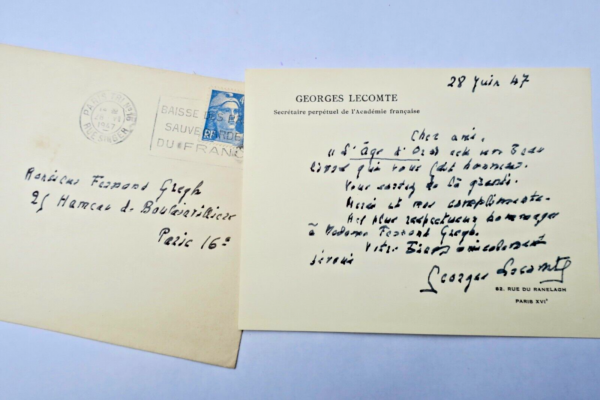 PARIS
1947
BAISSE DES
SAUVEGARDE
DU FRANC
Monsieur Fernand Gregh
25 Hameau de Boulainvilliers
Paris 16e
28 Juin 47
GEORGES LECOMTE
Secrétaire perpétuel de l'Académie française
Cher ami,
"L'âge d'Or" est un beau
livre qui vous fait honneur.
Vous
Merci et mes compliments.
Mes plus respectueux hommages
à Madame Fernand Gregh.
Votre bien amicalement
dévoué
Georges Lecomte
63, RUE DU RANELAGH
PARIS XVIe